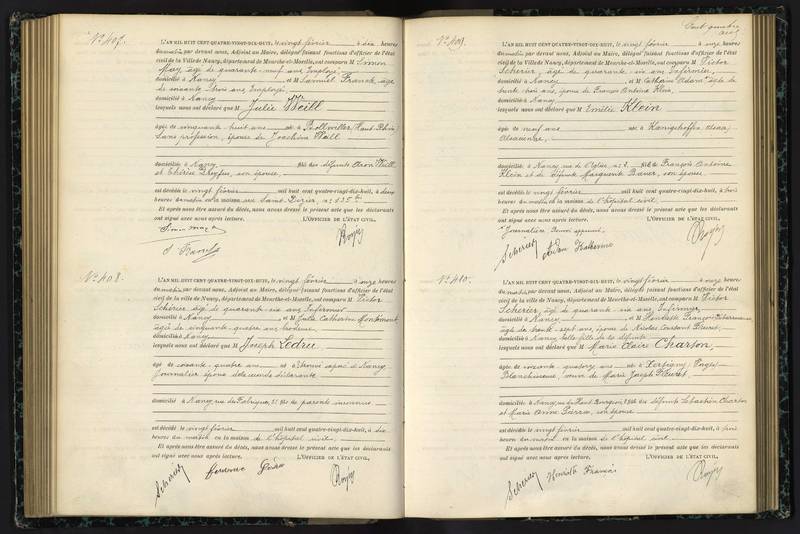 N° 407.
L'AN MIL HUIT CENT QUATRE-VINGT-DIX-HUIT, le vingt février à dix heures
du matin par devant nous, Adjoint au Maire, délégué faisant fonctions d'officier de l'état
civil de la Ville de Nancy, département de Meurthe-et-Moselle, ont comparu M Simon
May, âgé de quarante-neuf ans, Employé,
domicilié à Nancy et M Samuel Franck, âgé
de soixante trois ans, Employé,
domicilié à Nancy
lesquels nous ont déclaré que M Julie Weill
âgée de cinquante huit ans née à Bollwiller (Haut-Rhin)
Sans profession, épouse de Joachim Weill
domiciliée à Nancy fille des défunts Aron Weill
et Thérèse Dreyfus, son épouse,
est décédée le vingt février mil huit cent quatre-vingt-dix-huit, à deux
heures du matin en la maison rue Saint Dizier, n° 135
Et après nous être assuré du décès, nous avons dressé le présent acte que les déclarants
ont signé avec nous après lecture. L'OFFICIER DE L'ÉTAT CIVIL,
Simon May
S. Franck
N° 408.
L'AN MIL HUIT CENT QUATRE-VINGT-DIX-HUIT, le vingt février à onze heures
du matin par devant nous, Adjoint au Maire, délégué faisant fonctions d'officier de l'état
civil de la ville de Nancy, département de Meurthe-et-Moselle, ont comparu M Victor
Scherier âgé de quarante-six ans Infirmier
domicilié à Nancy et M Julie Catherine
âgée de cinquante quatre ans brodeuse
domiciliée à Nancy
lesquels nous ont déclaré que M Joseph Ledru
âgé de soixante quatre ans né à
Journalier époux de la seconde déclarante
domicilié à Nancy, rue des Fabriques, fils de parents inconnus
est décédé le vingt février mil huit cent quatre-vingt-dix-huit, à dix
heures du matin en la maison de l'hôpital civil,
Et après nous être assuré du décès, nous avons dressé le présent acte que les déclarants
ont signé avec nous après lecture. L'OFFICIER DE L'ÉTAT CIVIL,
Scherier
N° 409.
L'AN MIL HUIT CENT QUATRE-VINGT-DIX-HUIT, le vingt février à onze heures
du matin par devant nous, Adjoint au Maire, délégué faisant fonctions d'officier de l'état
civil de la Ville de Nancy, département de Meurthe-et-Moselle, ont comparu M Victor
Scherier, âgé de quarante-six ans Infirmier,
domicilié à Nancy et M Catherine Adam âgée de
trente trois ans, épouse de François Antoine Klein,
domiciliée à Nancy
lesquels nous ont déclaré que M Emilie Klein
âgée de neuf ans née à Kœnigshoffen (Alsace)
Alsacienne,
domiciliée à Nancy, rue de l'Eglise, n° 2, fille de François Antoine
Klein et de défunte Marguerite Bauer, son épouse
est décédée le vingt février mil huit cent quatre-vingt-dix-huit, à trois
heures du matin en la maison de l'hôpital civil
Et après nous être assuré du décès, nous avons dressé le présent acte que les déclarants
ont signé avec nous après lecture. L'OFFICIER DE L'ÉTAT CIVIL,
Journalière Renvoi approuvé.
Scherier
Adam Katherine
N° 410.
L'AN MIL HUIT CENT QUATRE-VINGT-DIX-HUIT, le vingt février à onze heures
du matin par devant nous, Adjoint au Maire, délégué faisant fonctions d'officier de l'état
civil de la ville de Nancy, département de Meurthe-et-Moselle, ont comparu M Victor
Scherier, âgé de quarante-six ans, Infirmier
domicilié à Nancy et M Henriette François
âgée de trente-sept ans, épouse de Nicolas Constant Pleuret,
domiciliée à Nancy belle-fille de la défunte
lesquels nous ont déclaré que M Marie Claire Charton,
âgée de soixante quatorze ans née à Xertigny (Vosges)
Blanchisseuse, veuve de Marie Joseph Pleuret
domiciliée à Nancy, rue du Haut Bourgeois, fille des défunts Sébastien Charton
et Marie Anne Pierre, son épouse
est décédée le vingt février mil huit cent quatre-vingt-dix-huit, à
heures du matin en la maison de l'hôpital civil
Et après nous être assuré du décès, nous avons dressé le présent acte que les déclarants
ont signé avec nous après lecture. L'OFFICIER DE L'ÉTAT CIVIL,
Scherier
Henriette François